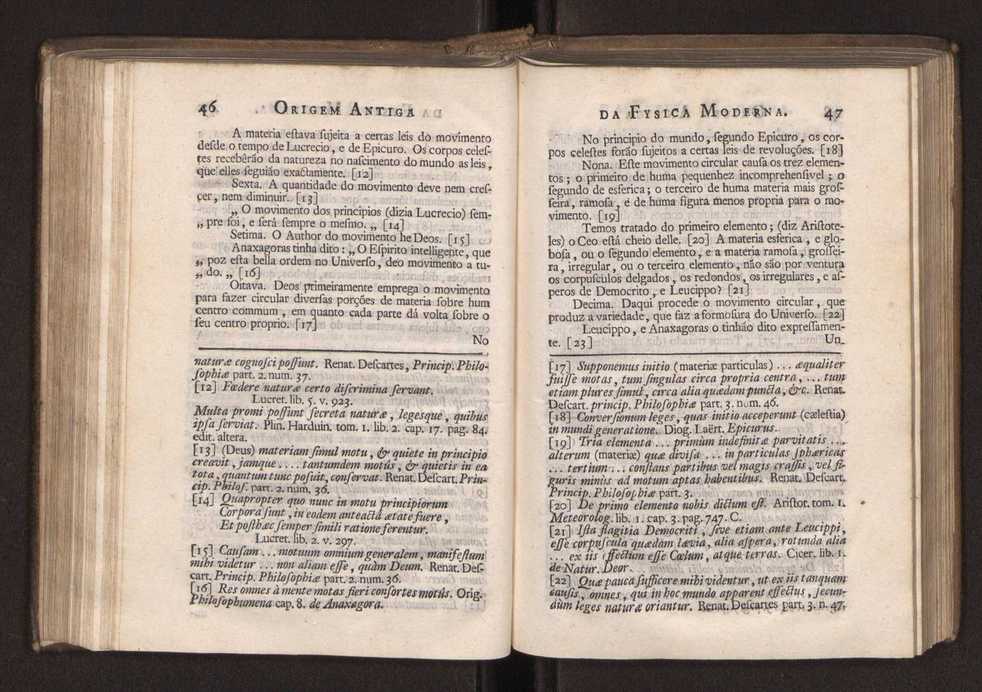 46 ORIGEM ANTIGA
A materia eſtava ſujeita a certas leis do movimento
desde o tempo de Lucrecio, e de Epicuro. Os corpos celeſ-
tes recebêrão da natureza no naſcimento do mundo as leis,
que elles ſeguião exactamente. [12]
Sexta. A quantidade do movimento deve nem creſ-
cer, nem diminuir. [13]
„ O movimento dos principios (dizia Lucrecio) ſem-
„ pre foi, e ſerá ſempre o meſmo. „ [14]
Setima. O Author do movimento he Deos. [15]
Anaxagoras tinha dito: „ O Eſpirito intelligente, que
„ poz eſta bella ordem no Univerſo, deo movimento a tu-
„ do. „ [16]
Oitava. Deos primeiramente emprega o movimento
para fazer circular diverſas porções de materia ſobre hum
centro commum, em quanto cada parte dá volta ſobre o
ſeu centro proprio. [17]
No
naturæ cognoſci poſſunt. Renat. Deſcartes, Princip. Philo-
ſophiæ part. 2. num. 37.
[12] Fœdere naturæ certo diſcrimina ſervant.
Lucret. lib. 5. v. 923.
Multa promi poſſunt ſecreta naturæ, legesque, quibus
ipſa ſerviat. Plin. Harduin. tom. 1. lib. 2. cap. 17. pag. 84.
edit. altera.
[13] (Deus) materiam ſimul motu, & quiete in principio
creavit, jamque .... tantumdem motûs, & quietis in ea
tota, quantum tunc poſuit, conſervat. Renat. Deſcart. Prin-
cip. Philoſ. part. 2. num. 36.
[14] Quapropter quo nunc in motu principiorum
Corpora ſunt, in eodem anteactâ ætate fuere,
Et poſthæc ſemper ſimili ratione ferentur.
Lucret. lib. 2. v. 297.
[15] Cauſam ... motuum omnium generalem, manifeſtum
mihi videtur ... non aliam eſſe, quàm Deum. Renat. Deſ-
cart. Princip. Philoſophiæ part. 2. num. 36.
[16] Res omnes à mente motas fieri conſortes motûs. Orig.
Philoſophumena cap. 8. de Anaxagora.
DA FYSICA MODERNA. 47
No principio do mundo, ſegundo Epicuro, os cor-
pos celeſtes forão ſujeitos a certas leis de revoluções. [18]
Nona. Eſte movimento circular cauſa os trez elemen-
tos; o primeiro de huma pequenhez incomprehenſivel; o
ſegundo de esferica; o terceiro de huma materia mais groſ-
ſeira, ramoſa, e de huma figura menos propria para o mo-
vimento. [19]
Temos tratado do primeiro elemento; (diz Ariſtote-
les) o Ceo eſtá cheio delle. [20] A materia esferica, e glo-
boſa, ou o ſegundo elemento, e a materia ramoſa, groſſei-
ra, irregular, ou o terceiro elemento, não são por ventura
os corpuſculos delgados, os redondos, os irregulares, e aſ-
peros de Democrito, e Leucippo? [21]
Decima. Daqui procede o movimento circular, que
produz a variedade, que faz a formoſura do Univerſo. [22]
Leucippo, e Anaxagoras o tinhão dito expreſſamen-
te. [23] Un-
[17] Supponemus initio (materiæ particulas) ... æqualiter
fuiſſe motas, tum ſingulas circa propria centra, ... tum
etiam plures ſimul, circa alia quædam puncta, &c. Renat.
Deſcart. princip. Philoſophiæ part. 3. num. 46.
[18] Converſionum leges, quas initio acceperunt (cæleſtia)
in mundi generatione. Diog. Laërt. Epicurus.
[19] Tria elementa ... primùm indefinitæ parvitatis ...
alterum (materiæ) quæ diviſa ... in particulas ſphæricas
... tertium ... conſtans partibus vel magis craſſis, vel fi-
guris minùs ad motum aptas habentibus. Renat. Deſcart.
Princip. Philoſophiæ part. 3.
[20] De primo elemento nobis dictum eſt. Ariſtot. tom. 1.
Meteorolog. lib. 1. cap. 3. pag. 747. C.
[21] Iſta flagitia Democriti, ſeve etiam ante Leucippi,
eſſe corpuſcula quædam lævia, alia aſpera, rotunda alia
... ex iis effectum eſſe Cœlum, atque terras. Cicer. lib. 1.
de Natur. Deor.
[22] Quæ pauca ſufficere mihi videntur, ut ex iis tanquam
cauſis, omnes, qui in hoc mundo apparent effectus, ſecun-
dùm leges naturæ oriantur. Renat. Deſcartes part. 3. n. 47.